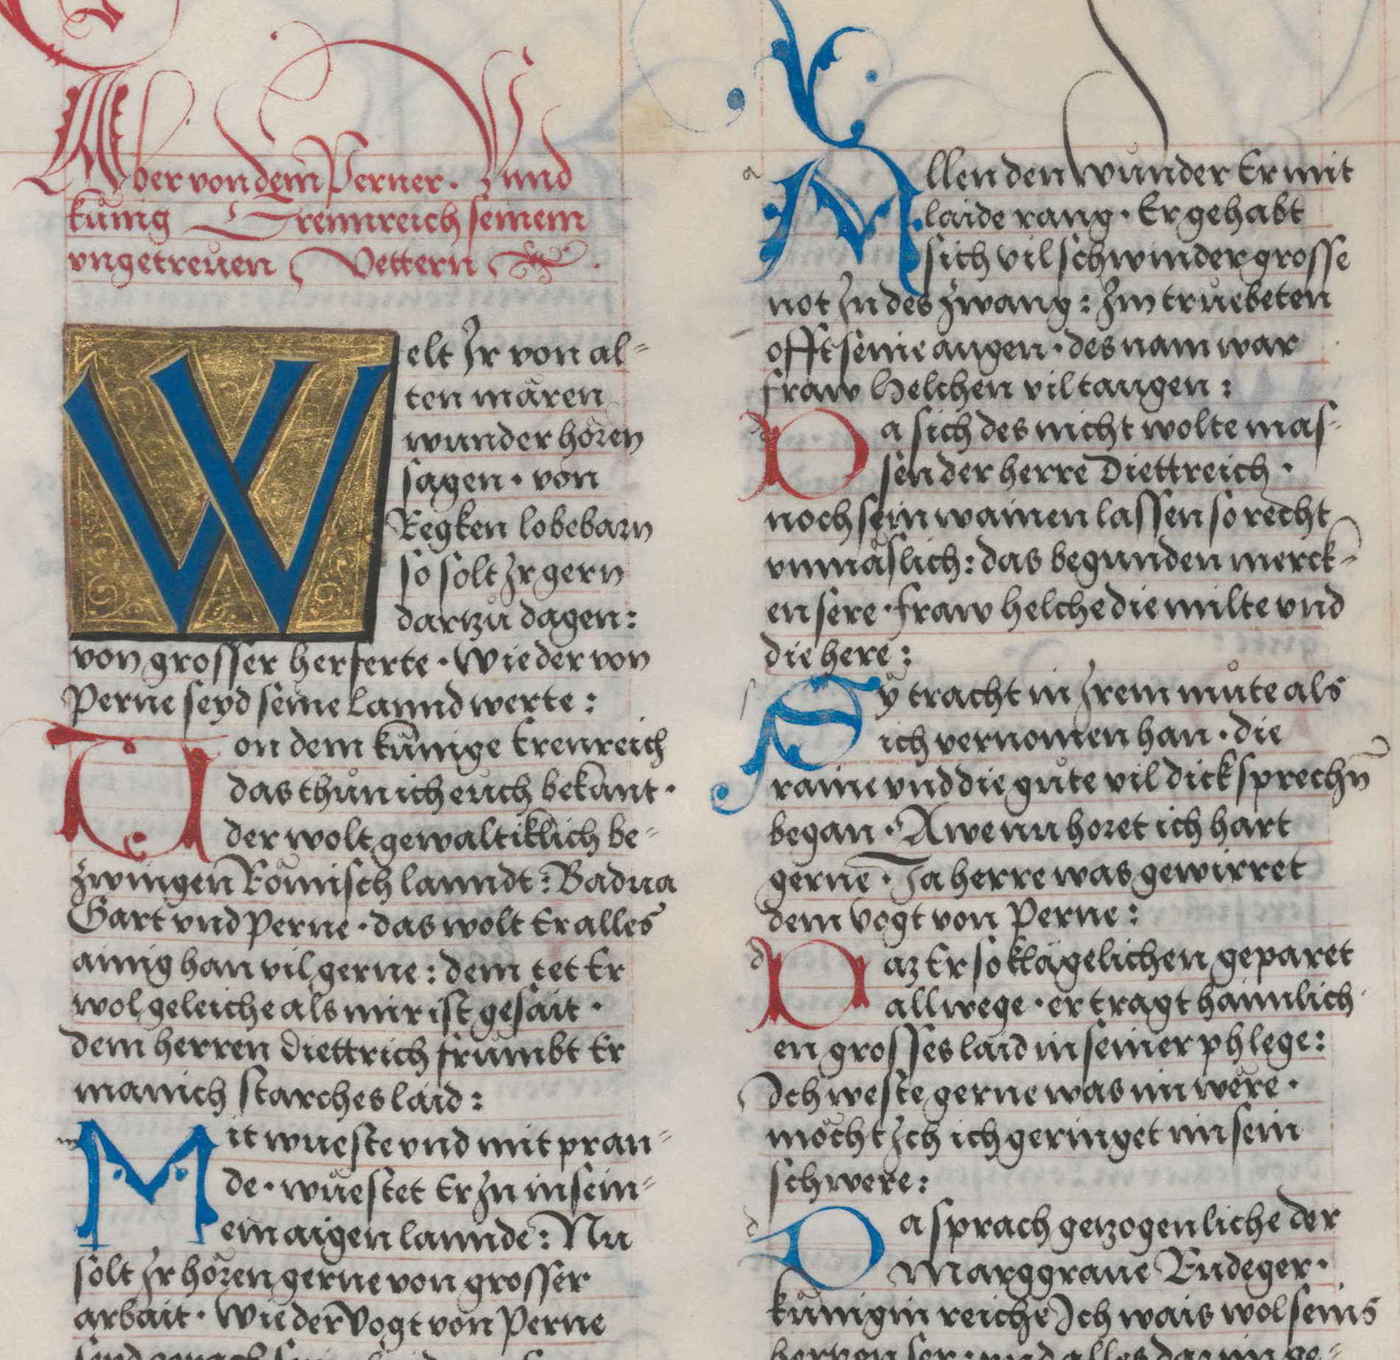 Aber von dem Perner. Vnnd
kunig Erennreich seinem
vngetreuen Vettern
Welt Ir von al-
ten mären
wunder hören
sagen. von
Regken lobebarn
so solt Ir gern
dartzů dagen:
von grosser herferte. Wie der von
Perne seyd seine lannd werte:
Von dem künige Erenreich
das thůn ich euch bekant.
der wolt gewaltiklich be-
zwingen Römisch lanndt: Badua
Gart vnd Perne. das wolt Er alles
ainig han vil gerne: dem tet Er
wol geleiche als mir ist gesait.
dem herren Diettrich frumbt Er
manich starches laid:
Mit wueste vnd mit pran-
de. wůestet Er In in sein-
em aigen lannde: Nu
solt Ir hören gerne von grosser
arbait. Wie der Vogt von Perne
Allen den wunder Er mit
laide rang. Er gehabt
sich vil schwinder grosse
not In des zwang: Im truebeten
offt seine augen. des nam war
fraw Helchen vil taugen:
Da sich des nicht wolte mas-
sen der herre Diettreich.
noch sein wainen lassen so recht
vnmäslich: das begunden merck-
en sere. fraw helche die milte vnd
die here:
Sy tracht in Irem můte als
ich vernomen han. die
raine vnd die gůte vil dick sprechn
began. Awe nu horet ich hart
gerne. Ja herre was gewirret
dem vogt von Perne:
Daz Er so klägelichen geparet
allwege. er tragt haimlich
en grosses laid in seiner phlege:
Ich weste gerne was im were.
möcht Ich ich geringet im sein
schwere:
Da sprach getzogenliche der
Marggraue Rudeger.
künigin reiche Ich wais wol seins